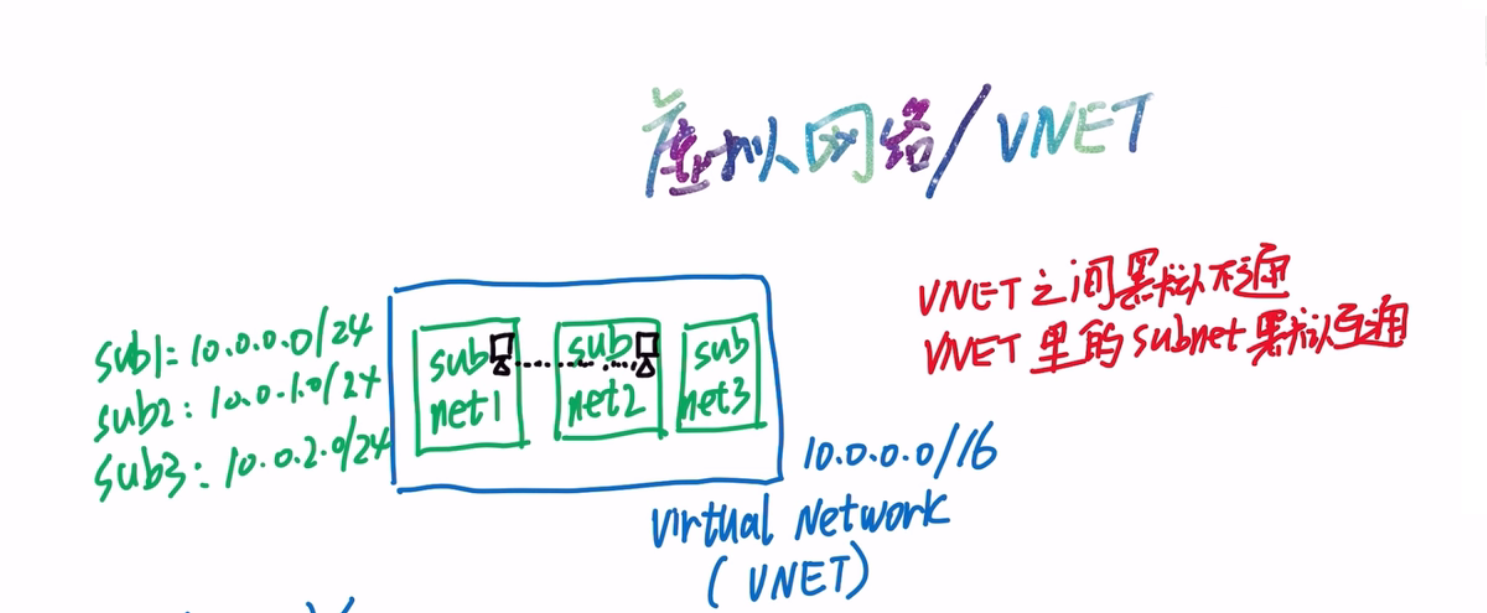 虚拟网络/VNET
VNET之间默认不通
VNET里的subnet默认互通
sub1: 10.0.0.0/24
sub2: 10.0.1.0/24
sub3: 10.0.2.0/24
sub
net1
sub
net2
sub
net3
10.0.0.0/16
Virtual Network
(VNET)